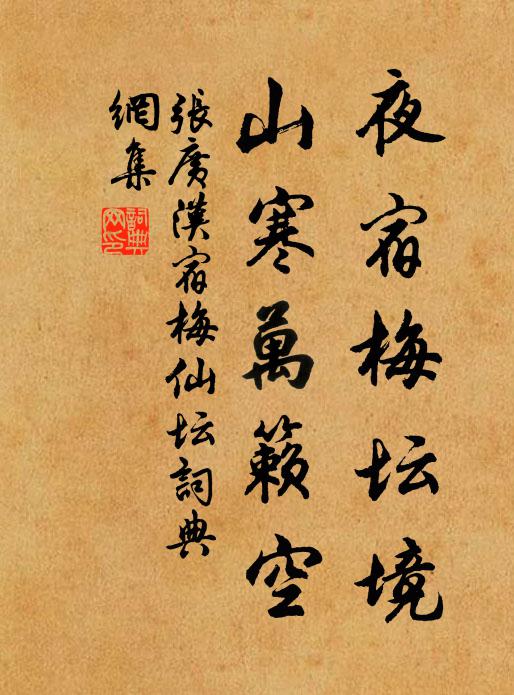 夜宿梅坛境
山寒萬籟空
張廣漢宿梅仙坛詞典
網集
詞典
网印